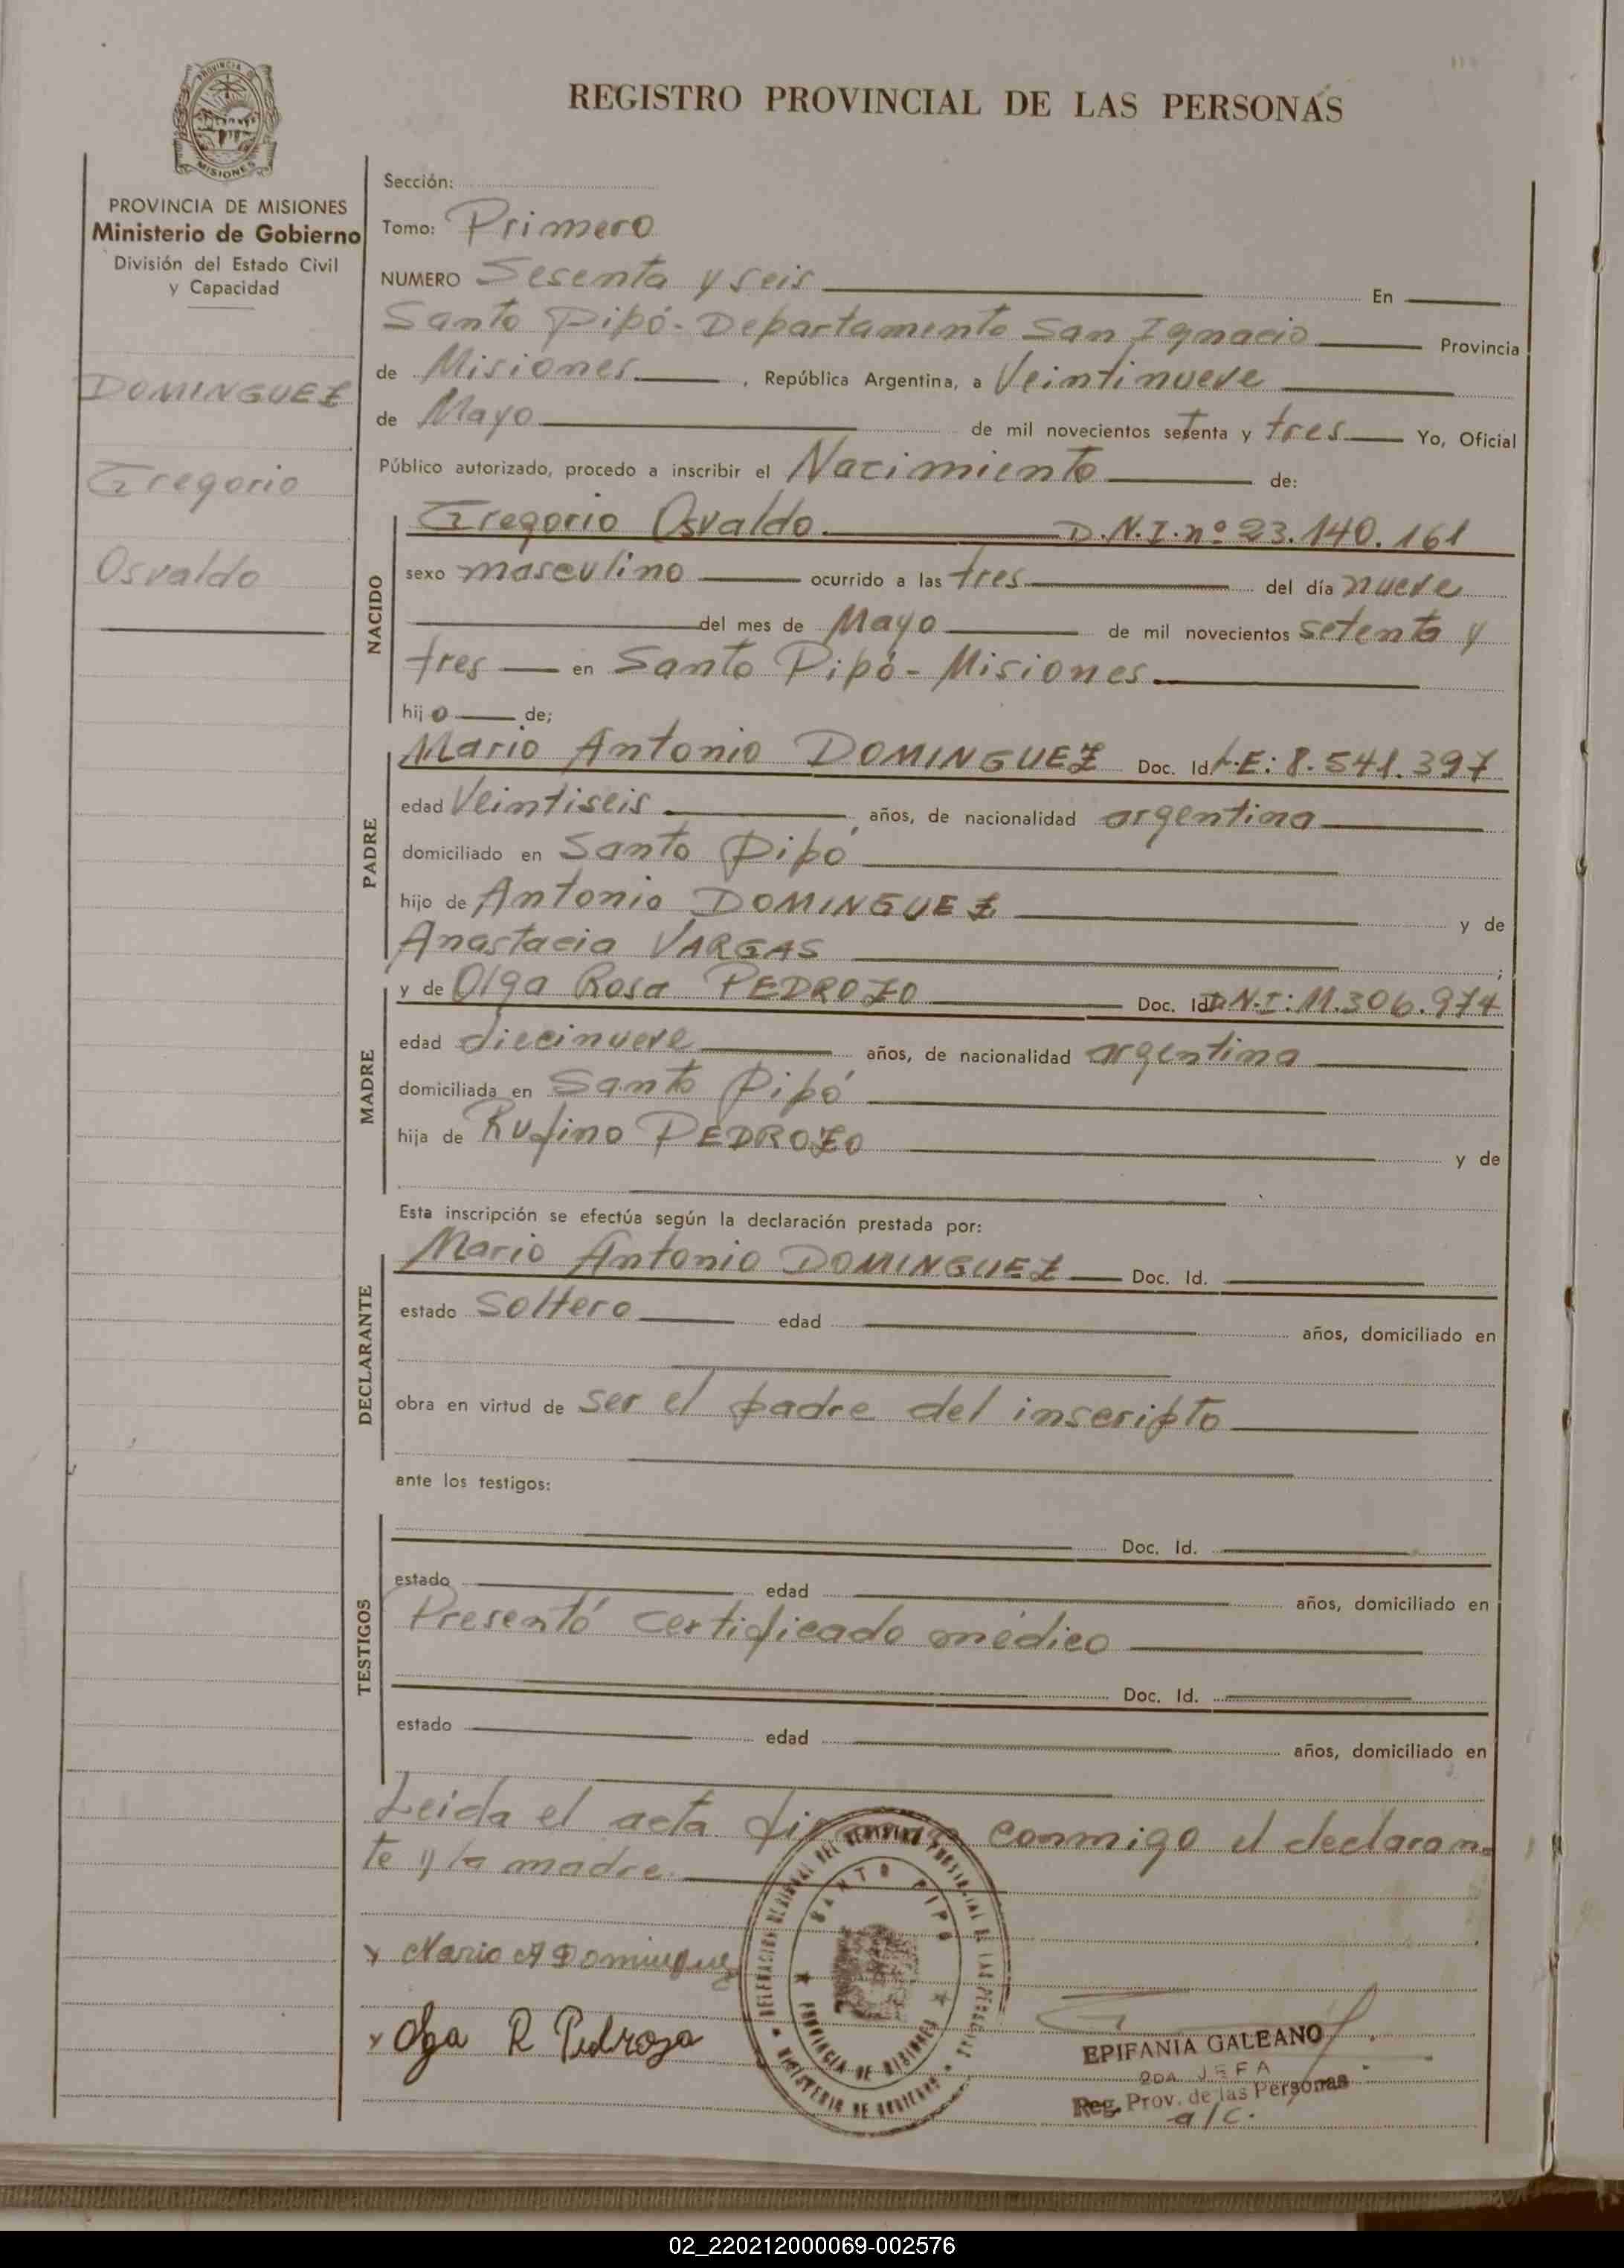 PROVINCIA
MISIONES
REGISTRO PROVINCIAL DE LAS PERSONAS
PROVINCIA DE MISIONES
Ministerio de Gobierno
División del Estado Civil
y Capacidad
DOMINGUEZ
Gregorio
Osvaldo
Sección:
Tomo: Primero
NUMERO Sesenta y seis En
Santo Pipó - Departamento San Ignacio Provincia
de Misiones, República Argentina, a Veintinueve
de Mayo de mil novecientos setenta y tres Yo, Oficial
Público autorizado, procedo a inscribir el Nacimiento de:
NACIDO
Gregorio Osvaldo D.N.I. nº 23.140.161
sexo masculino ocurrido a las tres del día nueve
del mes de Mayo de mil novecientos setenta y
tres en Santo Pipó - Misiones
hijo de;
PADRE
Mario Antonio DOMINGUEZ Doc. Id. L.E: 8.541.397
edad Veintiseis años, de nacionalidad argentina
domiciliado en Santo Pipó
hijo de Antonio DOMINGUEZ y de
Anastacia VARGAS ;
MADRE
y de Olga Rosa PEDROZO Doc. Id. D.N.I: 11.306.974
edad diecinueve años, de nacionalidad argentina
domiciliada en Santo Pipó
hija de Rufino PEDROZO y de
Esta inscripción se efectúa según la declaración prestada por:
DECLARANTE
Mario Antonio DOMINGUEZ Doc. Id.
estado Soltero edad años, domiciliado en
obra en virtud de ser el padre del inscripto
ante los testigos:
TESTIGOS
Doc. Id.
estado edad años, domiciliado en
Presentó certificado médico
Doc. Id.
estado edad años, domiciliado en
Leida el acta conmigo el declaran-
te y la madre.
DELEGACION REGIONAL DEL REGISTRO PROVINCIAL DE LAS PERSONAS
SANTO PIPO
PROVINCIA DE MISIONES
MINISTERIO DE GOBIERNO
x Mario A Dominguez
x Olga R Pedrozo
EPIFANIA GALEANO
2DA JEFA
Reg. Prov. de las Personas
a/c.
02_220212000069-002576